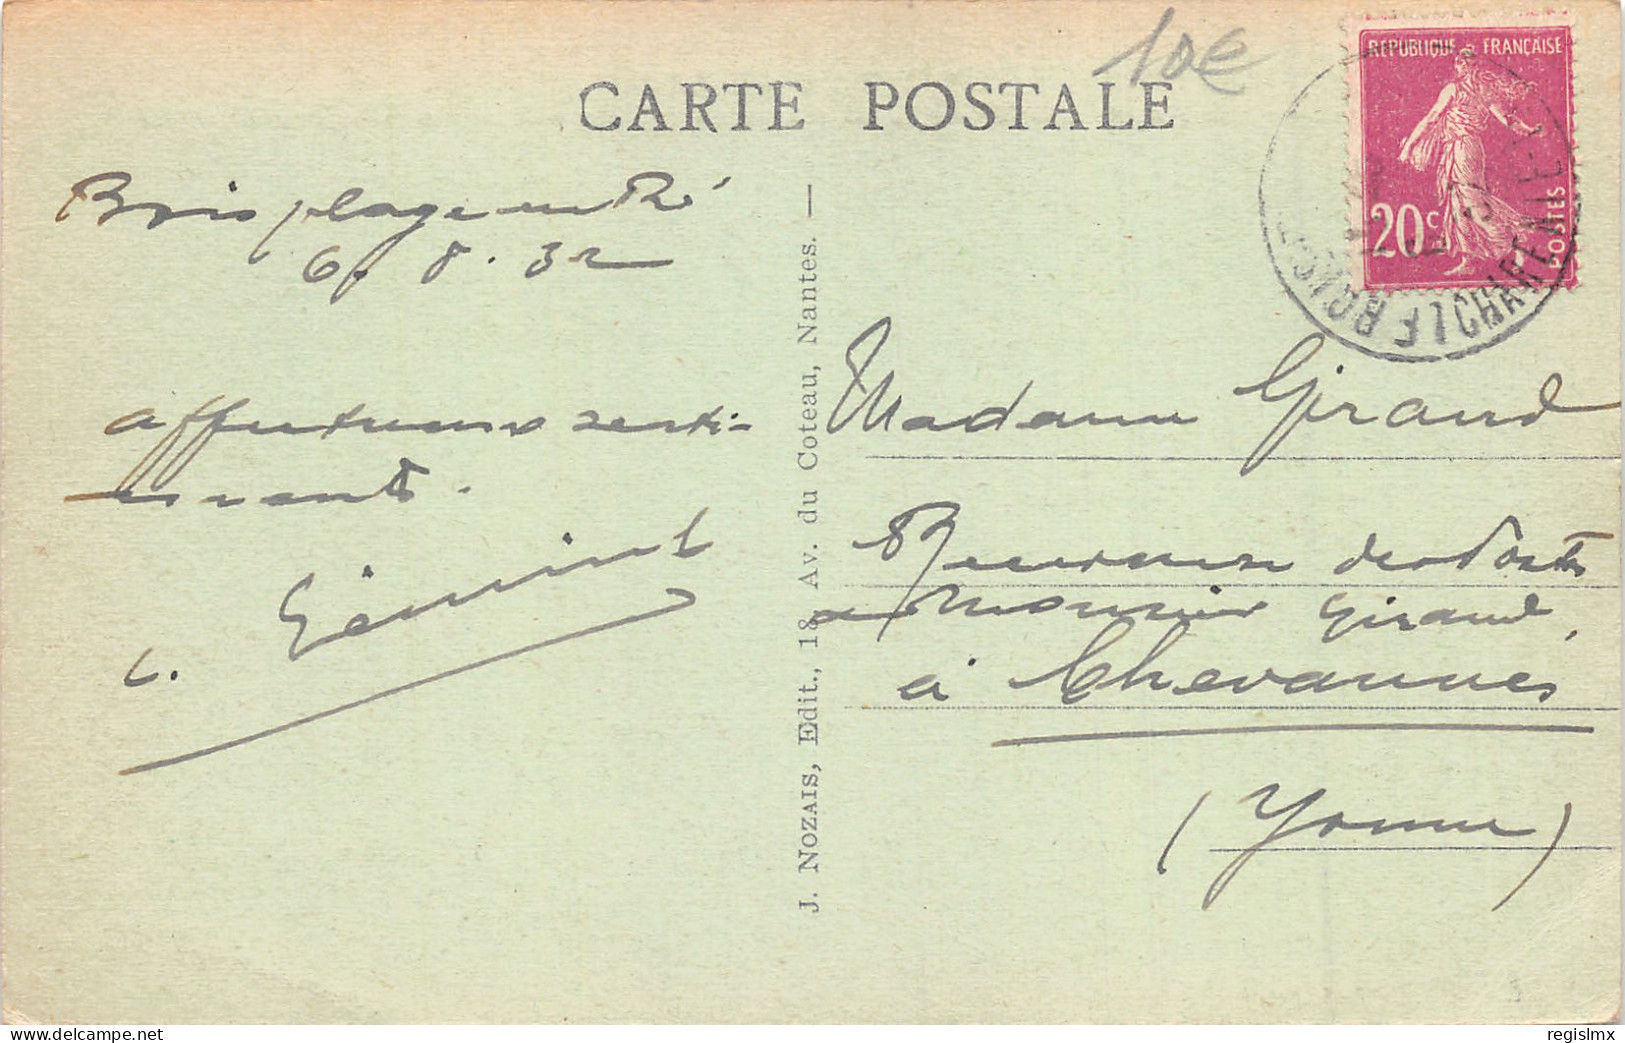 10€
CARTE POSTALE
REPUBLIQUE FRANÇAISE
20c
POSTES
LE BOIS
CHARENTE
Bois plage en Ré
6. 8. 32
affectueux senti-
ments.
C. Géminel
J. NOZAIS, Edit., 18, Av. du Coteau, Nantes. —
Madame Giraud
Receveuse des Postes
Monsieur Giraud,
à Chevannes
(Yonne)
regislmx
delcampe.net